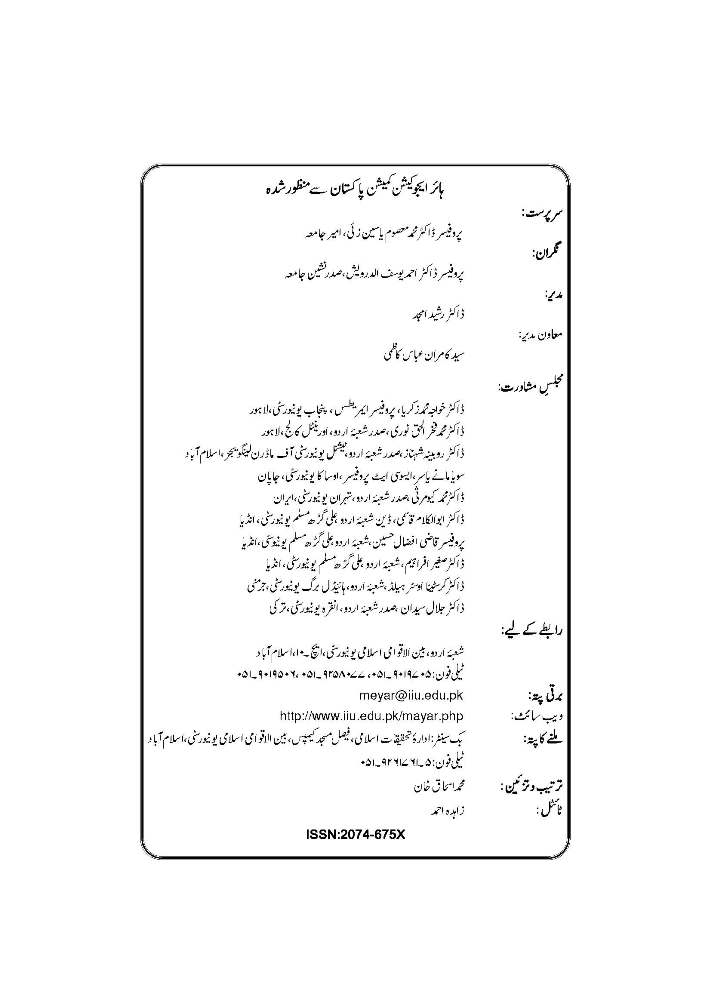 ہائر ایجوکیشن کمیشن پاکستان سے منظور شدہ
سرپرست:
پروفیسر ڈاکٹر محمد معصوم یاسین زئی، امیر جامعہ
نگران:
پروفیسر ڈاکٹر احمد یوسف الدرویش، صدر نشین جامعہ
مدیر:
ڈاکٹر رشید امجد
معاون مدیر:
سید کامران عباس کاظمی
مجلسِ مشاورت:
ڈاکٹر خواجہ محمد زکریا، پروفیسر ایمریطس، پنجاب یونیورسٹی، لاہور
ڈاکٹر محمد فخر الحق نوری، صدر شعبۂ اردو، اورینٹل کالج، لاہور
ڈاکٹر روبینہ شہناز، صدر شعبۂ اردو، نیشنل یونیورسٹی آف ماڈرن لینگویجز، اسلام آباد
سویامانے یاسر، ایسوسی ایٹ پروفیسر، اوساکا یونیورسٹی، جاپان
ڈاکٹر محمد کیومرثی، صدر شعبۂ اردو، تہران یونیورسٹی، ایران
ڈاکٹر ابوالکلام قاسمی، ڈین شعبۂ اردو علی گڑھ مسلم یونیورسٹی، انڈیا
پروفیسر قاضی افضال حسین، شعبۂ اردو علی گڑھ مسلم یونیورسٹی، انڈیا
ڈاکٹر صغیر افراہیم، شعبۂ اردو علی گڑھ مسلم یونیورسٹی، انڈیا
ڈاکٹر کرسٹینا اوسٹر ہیلڈ، شعبۂ اردو، ہائیڈل برگ یونیورسٹی، جرمنی
ڈاکٹر جلال سیدان، صدر شعبۂ اردو، انقرہ یونیورسٹی، ترکی
رابطے کے لیے:
شعبۂ اردو، بین الاقوامی اسلامی یونیورسٹی، ایچ۔۱۰، اسلام آباد
ٹیلی فون: ۹۰۱۹۷۰۵۔۰۵۱، ۹۲۵۸۰۷۷۔۰۵۱، ۹۰۱۹۵۰۶۔۰۵۱
برقی پتہ: meyar@iiu.edu.pk
ویب سائٹ: http://www.iiu.edu.pk/mayar.php
ملنے کا پتہ: بک سینٹر: ادارۂ تحقیقات اسلامی، فیصل مسجد کیمپس، بین الاقوامی اسلامی یونیورسٹی، اسلام آباد
ٹیلی فون: ۵۔۹۲۶۱۷۶۱۔۰۵۱
ترتیب و تزئین: محمد اسحاق خان
ٹائٹل: زاہدہ احمد
ISSN:2074-675X